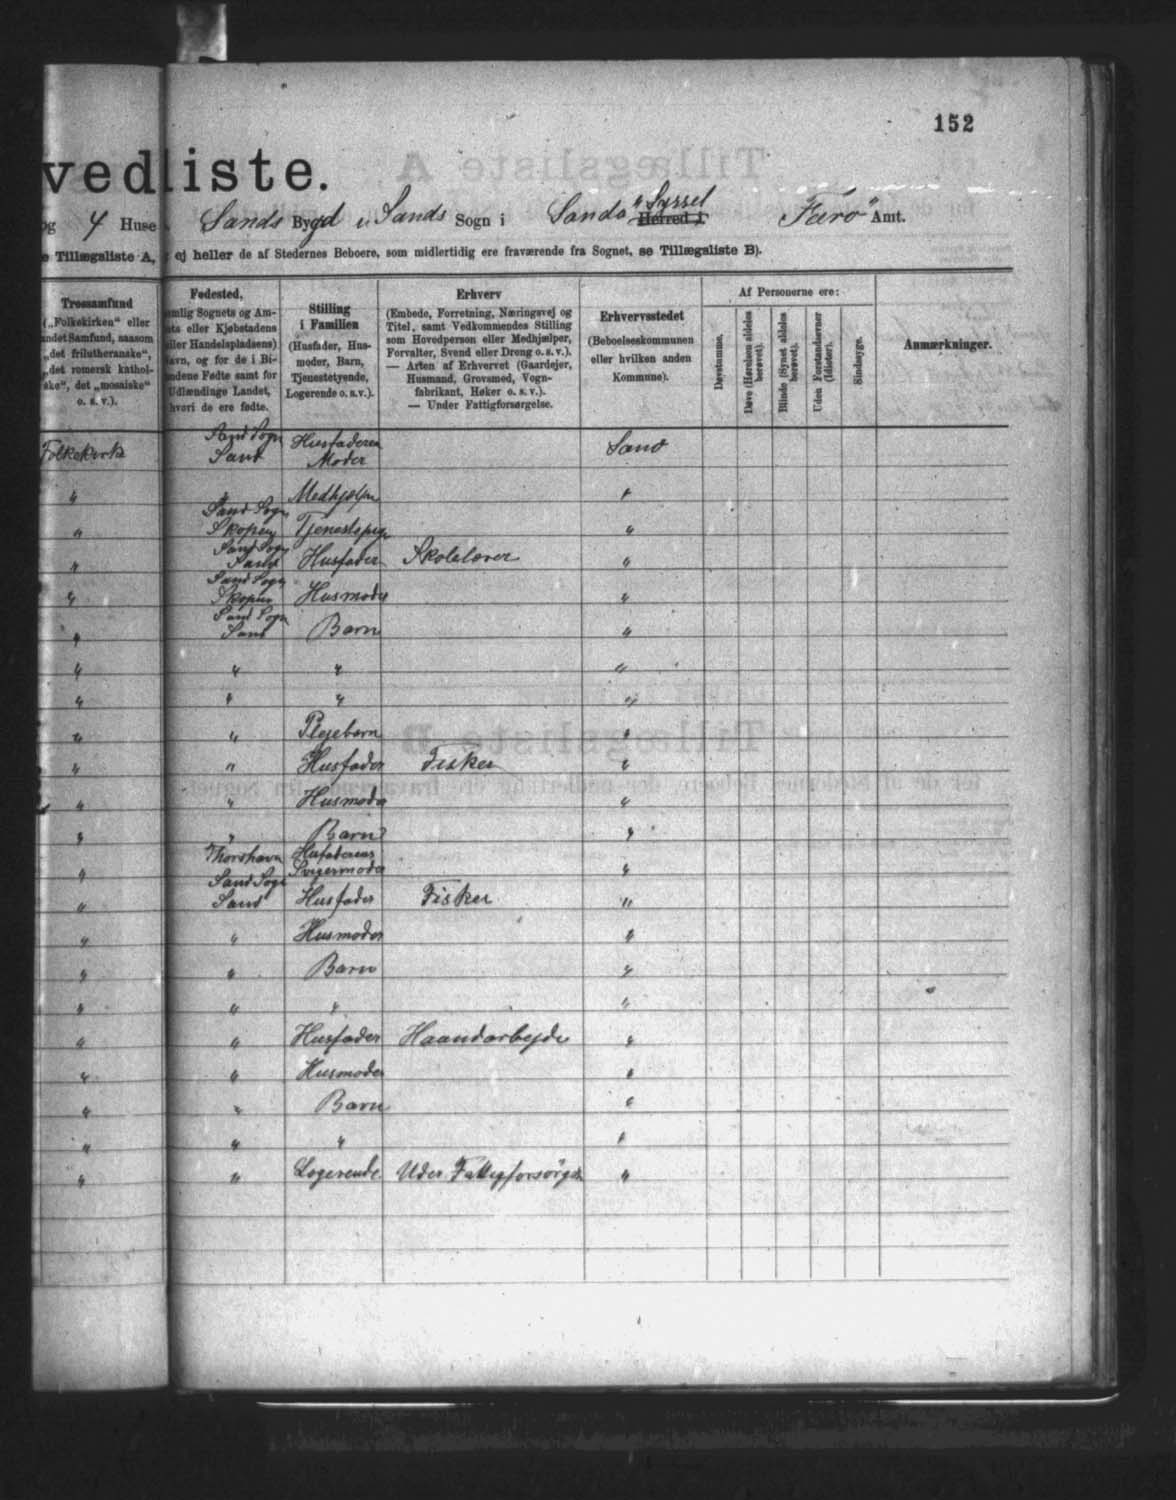 152
vedliste.
og 4 Huse i Sands Bygd i Sands Sogn i Sandø Syssel Herred i Færø Amt.
e Tillægsliste A, ej heller de af Stedernes Beboere, som midlertidig ere fraværende fra Sognet, se Tillægsliste B).
Trossamfund
(„Folkekirken“ eller
andet Samfund, saasom
„det frilutheranske“,
„det romersk kathol-
ske“, det „mosaiske“
o. s. v.).
Fødested,
nemlig Sognets og Am-
ets eller Kjøbstadens
(eller Handelspladsens)
Navn, og for de i Bi-
landene Fødte samt for
Udlændinge Landet,
hvori de ere fødte.
Stilling
i Familien
(Husfader, Hus-
moder, Barn,
Tjenestetyende,
Logerende o. s. v.).
Erhverv
(Embede, Forretning, Næringsvej og
Titel, samt Vedkommendes Stilling
som Hovedperson eller Medhjælper,
Forvalter, Svend eller Dreng o. s. v.).
— Arten af Erhvervet (Gaardejer,
Husmand, Grovsmed, Vogn-
fabrikant, Høker o. s. v.).
— Under Fattigforsørgelse.
Erhvervsstedet
(Beboelseskommunen
eller hvilken anden
Kommune).
Af Personerne ere:
Døvstumme.
Døve (Hørelsen aldeles
berøvet).
Blinde (Synet aldeles
berøvet).
Uden Forstandsevner
(Idioter).
Sindssyge.
Anmærkninger.
Folkekirke Sand Sogn Sand Husfaderen Moder Sand
" " Medhjælper "
" Sand Sogn Skopen Tjenestepige "
" Sand Sogn Sand Husfader Skolelærer "
" Sand Sogn Skopen Husmoder "
" Sand Sogn Sand Barn "
" " " "
" " " "
" " Plejebarn "
" " Husfader Fisker "
" " Husmoder "
" " Barn "
" Thorshavn Husfaderens Svigermoder "
" Sand Sogn Sand Husfader Fisker "
" " Husmoder "
" " Barn "
" " " "
" " Husfader Haandarbejde "
" " Husmoder "
" " Barn "
" " " "
" " Logerende Uder Fattigforsørgelse "